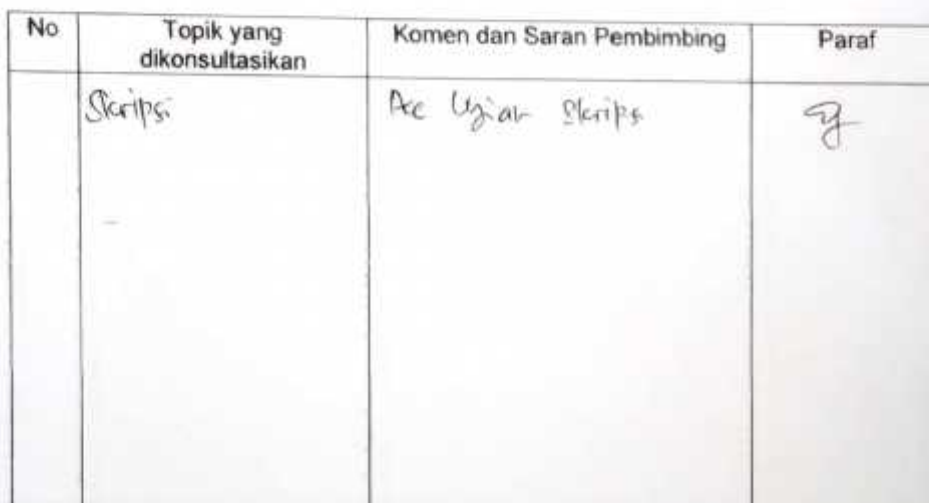 No Topik yang dikonsultasikan Komen dan Saran Pembimbing Paraf
Skripsi Acc Ujian Skripsi